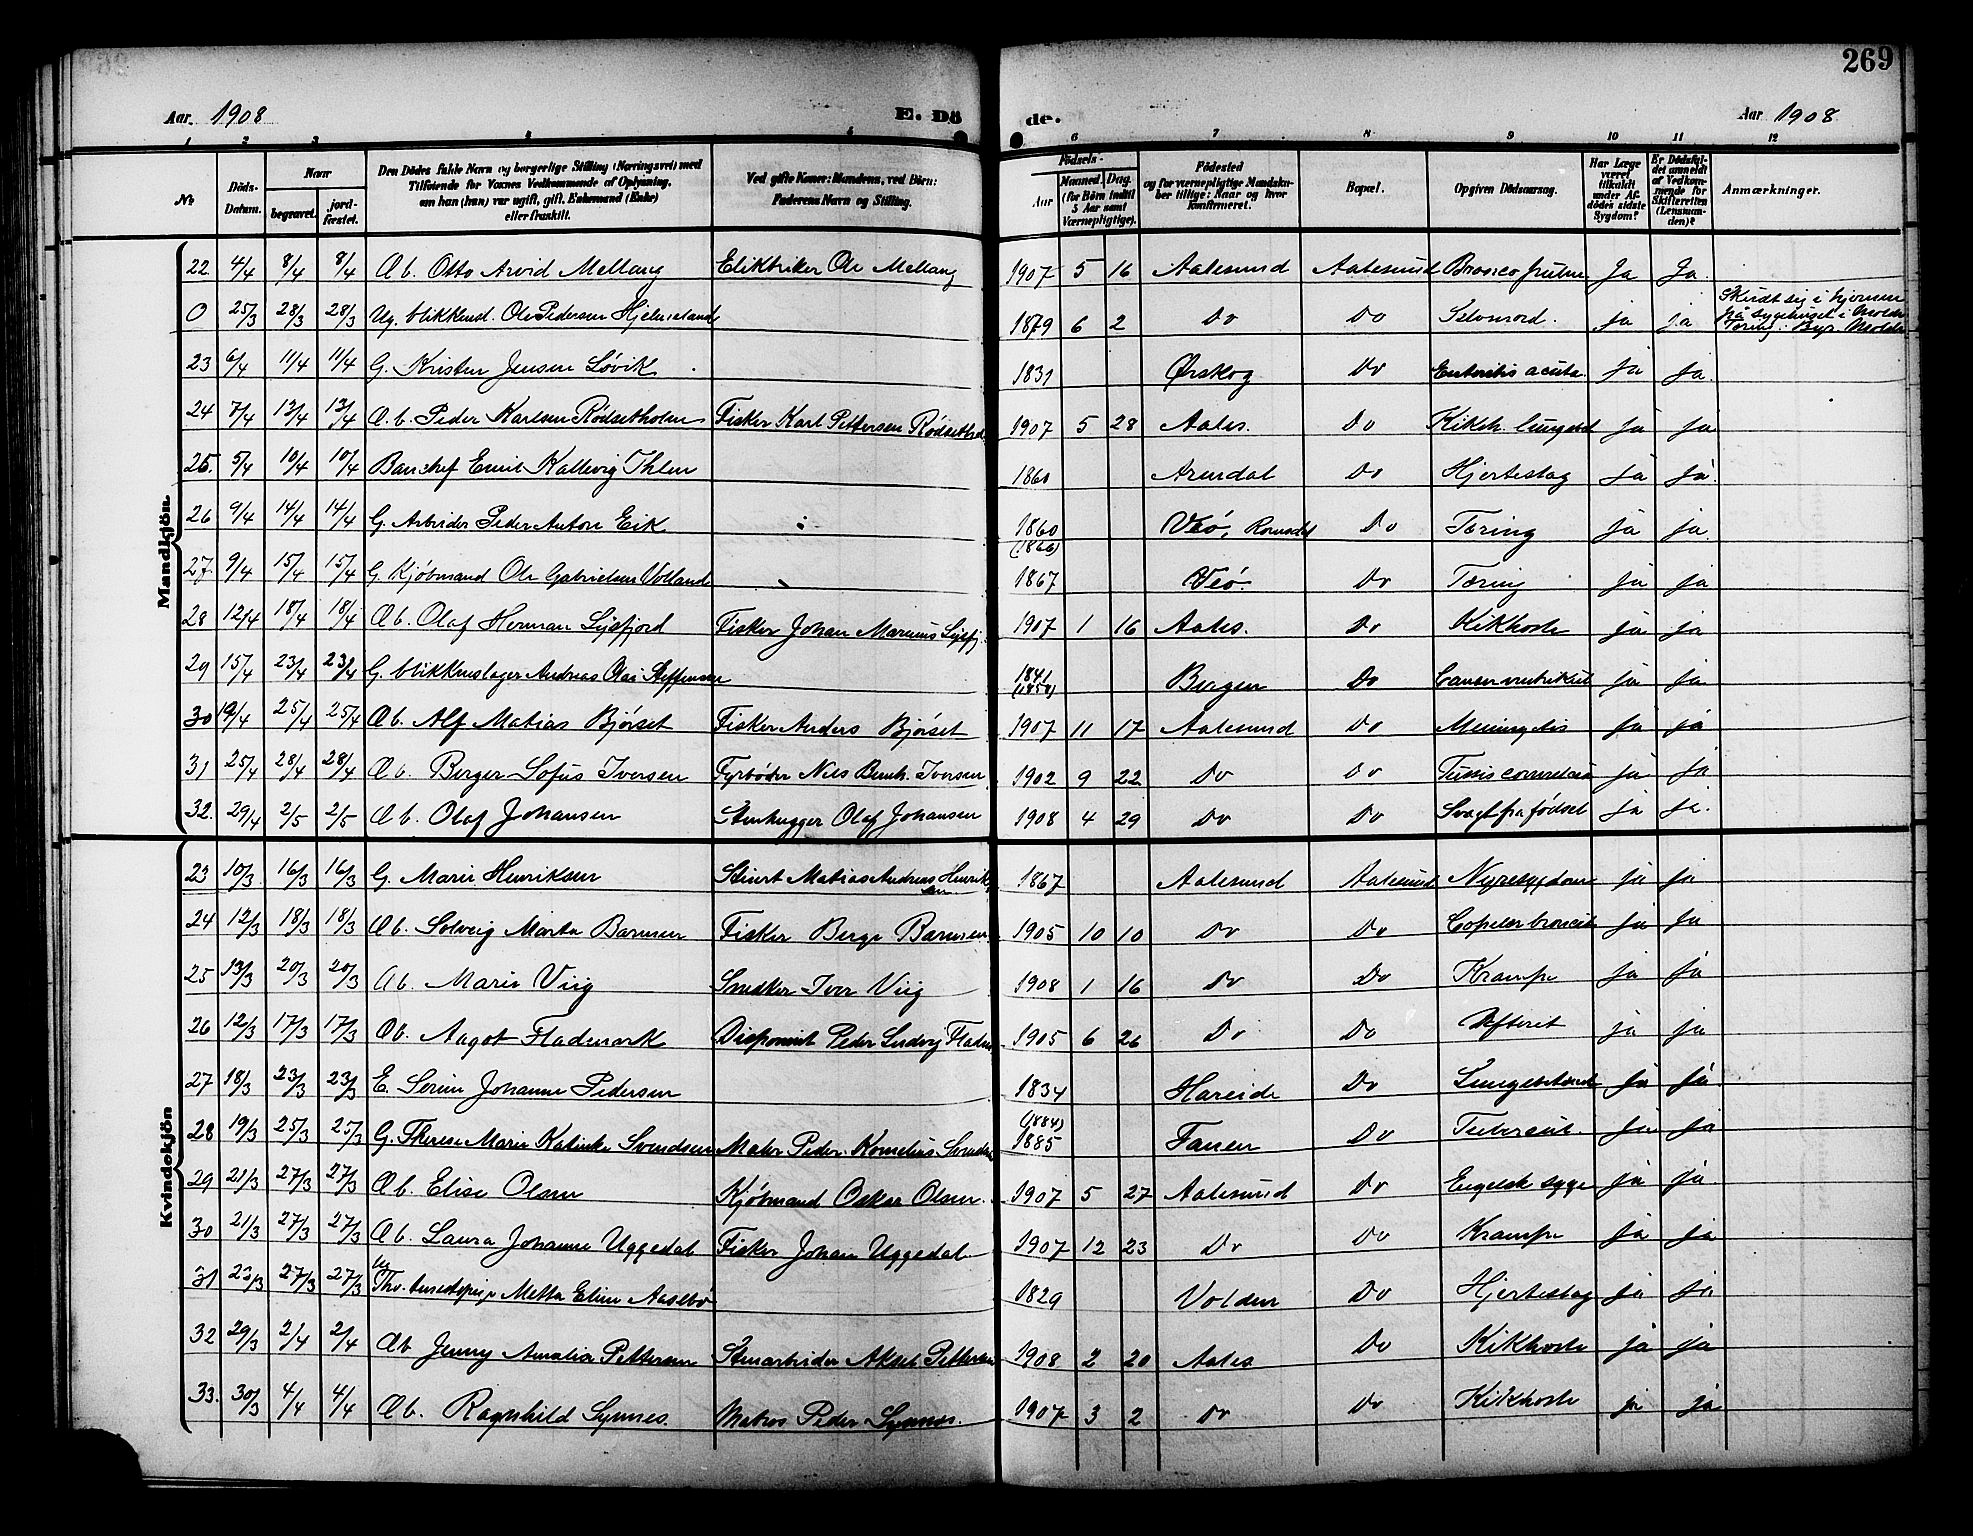 269
Aar. 1908 E. Dö de. Aar 1908
1 2 3 5 6 6 7 8 9 10 11 12
No Döds-Datum. Naar begravet. jordfæstet. Den Dödes fulde Navn og borgerlige Stilling (Næringsvei) med Tilföiende for Voxnes Vedkommende af Oplysning, om han (hun) var ugift, gift, Enkemand (Enke) eller fraskilt. Ved gifte Koner: Mandens, ved Börn: Faderens Navn og Stilling. Födsels- Aar Maaned. Dag. (for Börn indtil 5 Aar samt Værnepligtige). Födested og for værnepligtige Mandskaber tillige: Naar og hvor konfirmeret. Bopæl. Opgiven Dödsaarsag. Har Læge været tilkaldt under Afdödes sidste Sygdom? Er Dödsfaldet anmeldt af Vedkommende for Skifteretten (Lensmanden)? Anmærkninger.
Mandkjön
22 4/4 8/4 8/4 Æb. Otto Arvid Mellang Elikbriker Ole Mellang 1907 5 16 Aalesund Aalesund Ja Ja.
0 25/3 28/3 28/3 Ug. blikkensl. Ole Pedersen Hjelmeland 1879 6 2 Do Do Selvmord. ja ja Skudt sig i hjernen paa Sygehuset i Molde
23 6/4 11/4 11/4 G. Kristen Jensen Løvik 1831 Ørskog Do Enteritis acuta ja ja.
24 7/4 13/4 13/4 Æ.b. Peder Karlsen Rødsetholm Fisker Karl Pettersen 1907 5 28 Aales. Do Kikh. ja ja
25. 5/4 10/4 10/4 Emil Kallevig Thlen 1860 Arendal Do Hjerteslag ja ja.
26 9/4 14/4 14/4 G. Arbeider Peder Anton Eik 1860 (1866) Veø, Romsdal Do Tæring ja ja
27. 9/4 15/4 15/4 G. Kjøbmand Ole Gabrielsen Volland 1867 Veø. Do Tæring ja ja
28 12/4 18/4 18/4 Æb. Olaf Herman Fisker Johan Marinus 1907 1 16 Aales. Do Kikhoste ja ja
29 15/4 23/4 23/4 G. blikkenslager Andreas Olai Steffensen 1841 Bergen Do Cancer ventrikuli ja ja.
30 19/4 25/4 25/4 Æb. Alf Matias Bjørset Fisker Anders Bjørset 1907 11 17 Aalesund Do Meningitis ja ja
31 25/4 28/4 28/4 Æb. Berger Sofus Iversen Fyrbøder Nils Bernh. Iversen 1902 9 22 Do Do Tussis convulsiva ja ja
32. 29/4 2/5 2/5 Æb. Olaf Johansen Stenhugger Olaf Johansen 1908 4 29 Do Do Svagt fra fødsel ja ja.
Kvindekjön
23 10/3 16/3 16/3 G. Marie Henriksen Stuert Matias Andreas Henriksen 1867 Aalesund Aalesund Nyresygdom ja ja
24 12/3 18/3 18/3 Æb. Solveig Marta Barmen Fisker Berge Barmen 1905 10 10 Do Do ja ja
25 13/3 20/3 20/3 Æb Marie Viig Snedker Iver Viig 1908 1 16 Do Do Krampe ja ja
26 12/3 17/3 17/3 Æb. Aagot Flademark Disponent Peder Ludvig 1905 6 26 Do Do Difterit ja ja
27 18/3 23/3 23/3 E. Serine Johanne Pedersen 1834 Hareide Do Lungebetænd ja ja.
28 19/3 25/3 25/3 G. Therese Marie Katinka Svendsen Maler Peder Kornelius Svendsen (1884) 1885 Fanen Do Tubercul. ja ja
29 21/3 27/3 27/3 Æb. Elise Olsen Kjøbmand Oskar Olsen. 1907 5 27 Aalesund Do Engelsk syge ja ja.
30 21/3 27/3 27/3 Æb. Laura Johanne Uggedal Fisker Johan Uggedal. 1907 12 23 Do Do Krampe ja ja
31 23/3 27/3 27/3 Ug Metta Eline Aasebø 1829 Volden Do Hjerteslag ja ja
32 29/3 2/4 2/4 Æb Jenny Amalia Pettersen Stenarbeider Aksel Pettersen 1908 2 20 Aales Do Kikhoste ja ja
33. 30/3 4/4 4/4 Æb. Ragnhild Synnes. Matros Peder Synnes. 1907 3 2 Do Do Kikhoste ja ja